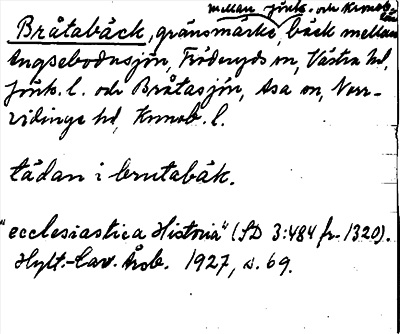 mellan Jönk. och Kronob. län
Bråtabäck, gränsmärke, bäck mellan
Ängsebodasjön, Fröderyds sn, Västra hd,
Jönk. l. och Bråtasjön, Asa sn, Norr-
vidinge hd, Kronob. l.
tädan i brutabäk.
"ecclesiastica Historia" (SD 3:484 fr. 1320).
Hylt.-Cav. Årsb. 1927, s. 69.